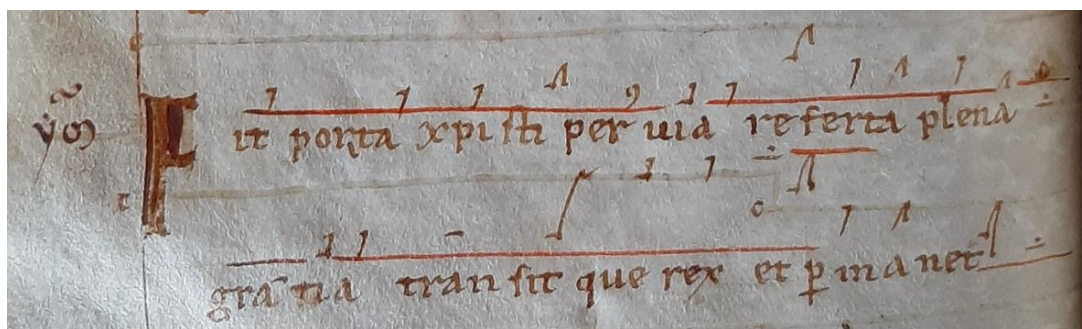 ẏm̃ Fit porta xpisti per uia referta plena
gra tia transit que rex et p manet